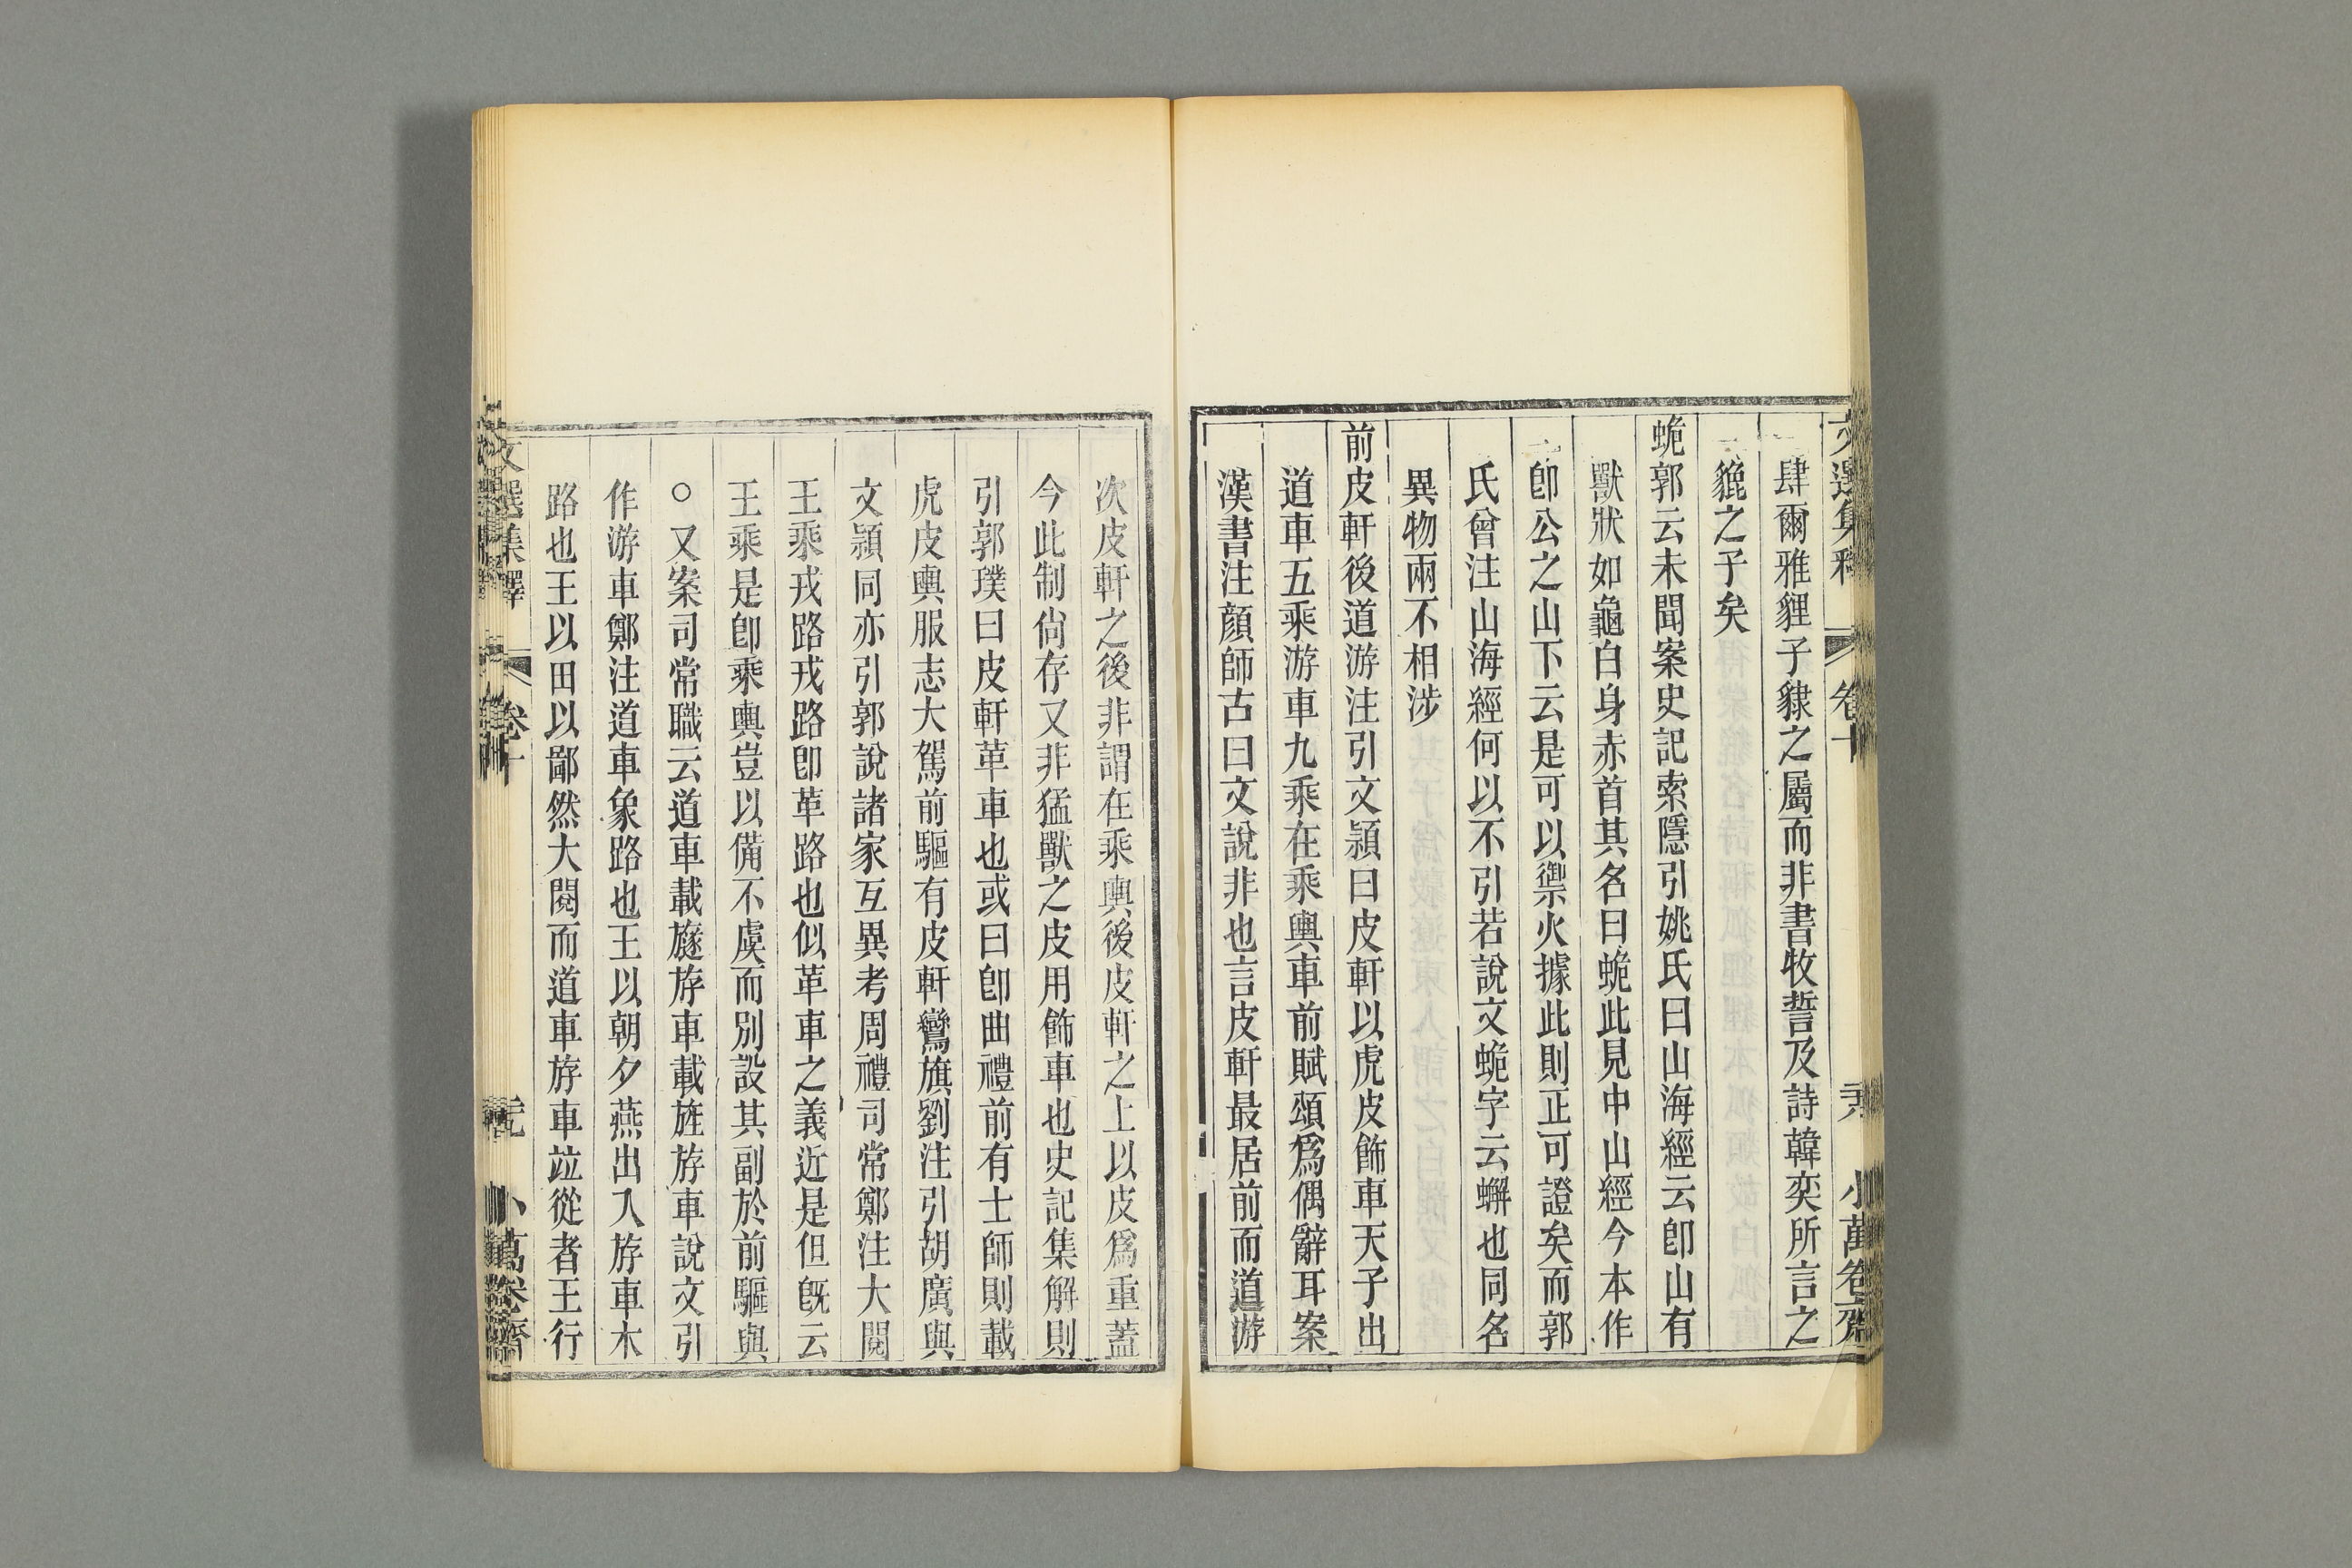 肆爾雅貍子貄之屬而非書牧誓及詩韓奕所言之
貔之子矣
蛫郭云未聞案史記索隱引姚氏曰山海經云卽山有
獸狀如龜白身赤首其名曰蛫此見中山經今本作
卽公之山下云是可以禦火據此則正可證矣而郭
氏曾注山海經何以不引若說文蛫字云蠏也同名
異物兩不相涉
前皮軒後道游注引文穎曰皮軒以虎皮飾車天子出
道車五乘游車九乘在乘輿車前賦頌爲偶辭耳案
漢書注顏師古曰文說非也言皮軒最居前而道游
次皮軒之後非謂在乘輿後皮軒之上以皮爲重蓋
今此制尙存又非猛獸之皮用飾車也史記集解則
引郭璞曰皮軒革車也或曰卽曲禮前有士師則載
虎皮輿服志大駕前驅有皮軒鸞旗劉注引胡廣與
文穎同亦引郭說諸家互異考周禮司常鄭注大閱
王乘戎路戎路卽革路也似革車之義近是但旣云
王乘是卽乘輿豈以備不虞而別設其副於前驅與
○又案司常職云道車載旞斿車載旌斿車說文引
作游車鄭注道車象路也王以朝夕燕出入斿車木
路也王以田以鄙然大閱而道車斿車竝從者王行
文選集釋
卷十
小萬卷齋